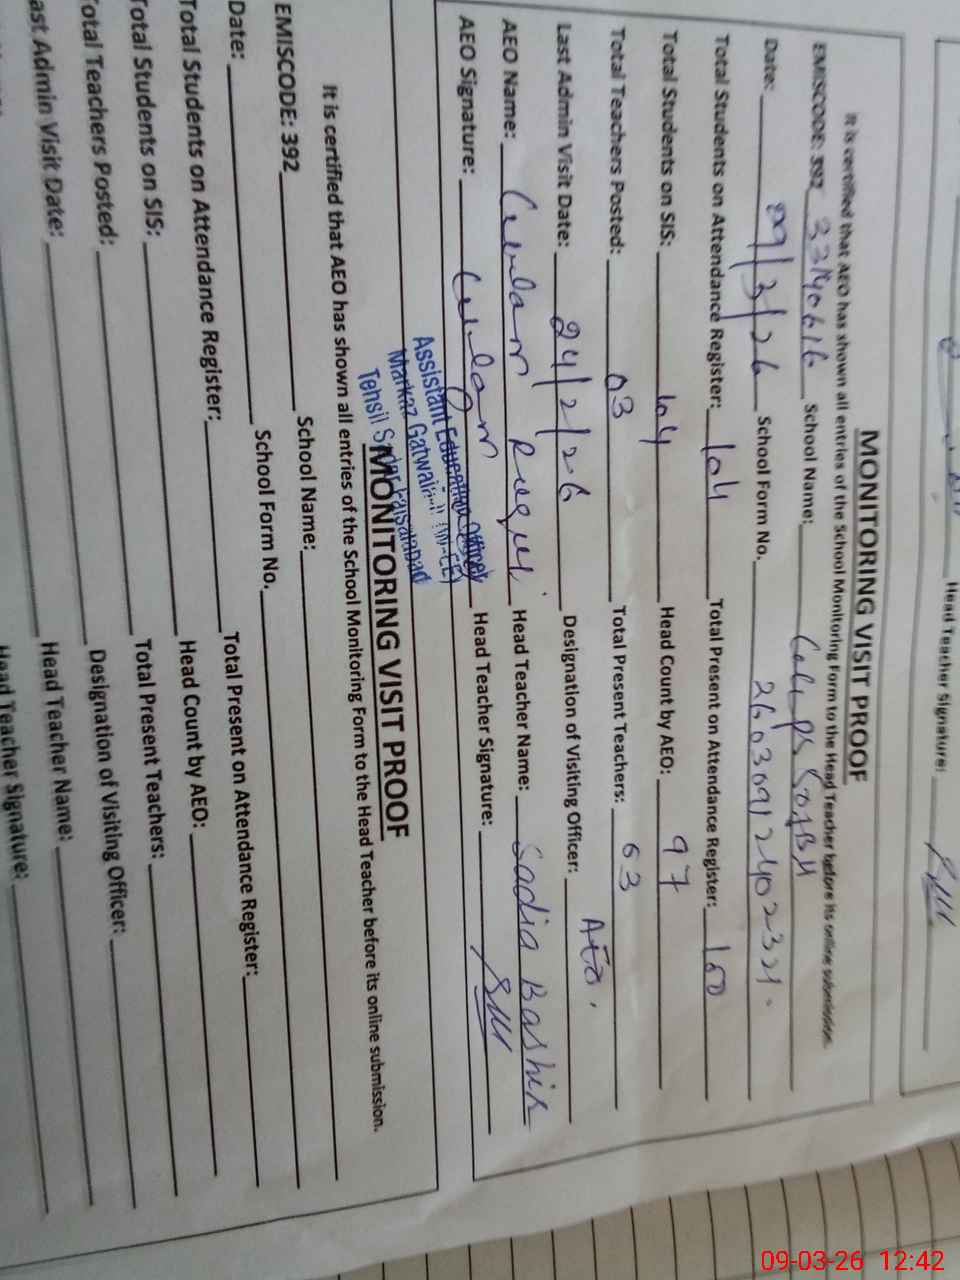 Head Teacher Signature:
MONITORING VISIT PROOF
It is certified that AEO has shown all entries of the School Monitoring Form to the Head Teacher before its online submission.
EMISCODE: 392 33140616 School Name:
Date: 09/3/26 School Form No. 2603091240232
Total Students on Attendance Register: 104 Total Present on Attendance Register: 100
Total Students on SIS: 104 Head Count by AEO: 97
Total Teachers Posted: 03 Total Present Teachers: 03
Last Admin Visit Date: 24/2/26 Designation of Visiting Officer: AEO.
AEO Name: Head Teacher Name: Sadia Bashir
AEO Signature: Head Teacher Signature:
Assistant Education Officer
Markaz Gatwala
Tehsil Sadar Faisalabad
MONITORING VISIT PROOF
It is certified that AEO has shown all entries of the School Monitoring Form to the Head Teacher before its online submission.
EMISCODE: 392 School Name:
Date: School Form No.
Total Students on Attendance Register: Total Present on Attendance Register:
Total Students on SIS: Head Count by AEO:
Total Teachers Posted: Total Present Teachers:
Last Admin Visit Date: Designation of Visiting Officer:
Head Teacher Name:
Head Teacher Signature:
09-03-26 12:42